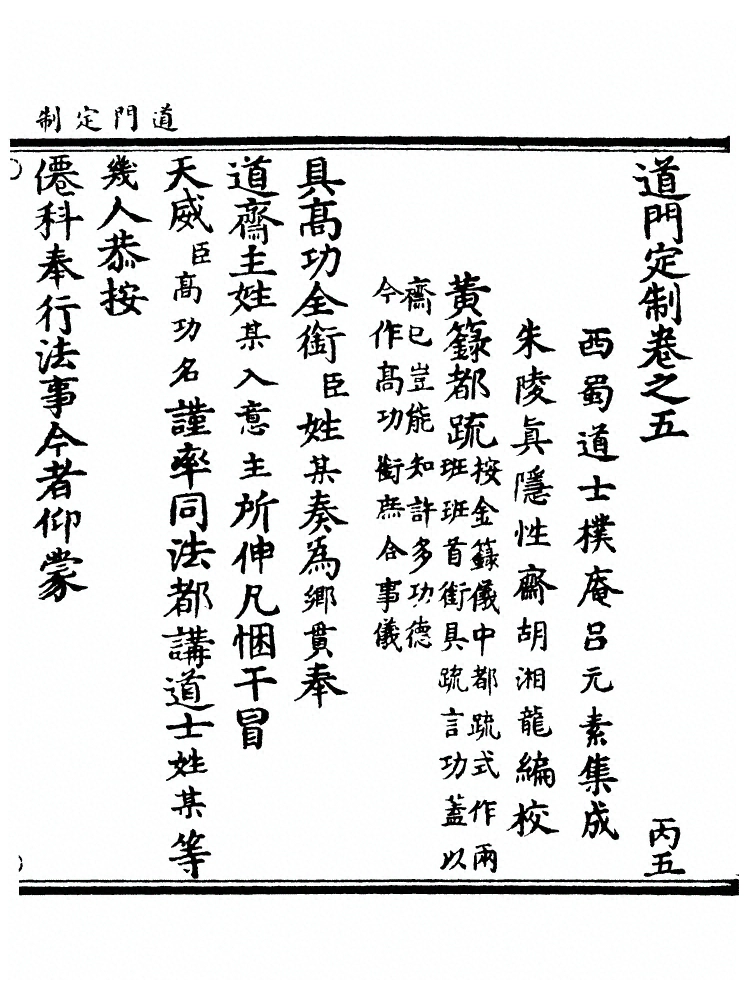 道門定制
道門定制卷之五　丙五
西蜀道士樸庵呂元素集成
朱陵眞隱性齋胡湘龍編校
黃籙都疏按金籙儀中都疏式作兩
班班首銜具疏言功蓋以
齋已豈能知許多功德
今作髙功銜庶合事儀
具髙功全銜臣姓某奏為鄉貫奉
道齋主姓某入意主所伸凡悃干冒
天威臣髙功名謹率同法都講道士姓某等
幾人恭按
僊科奉行法事今者仰蒙